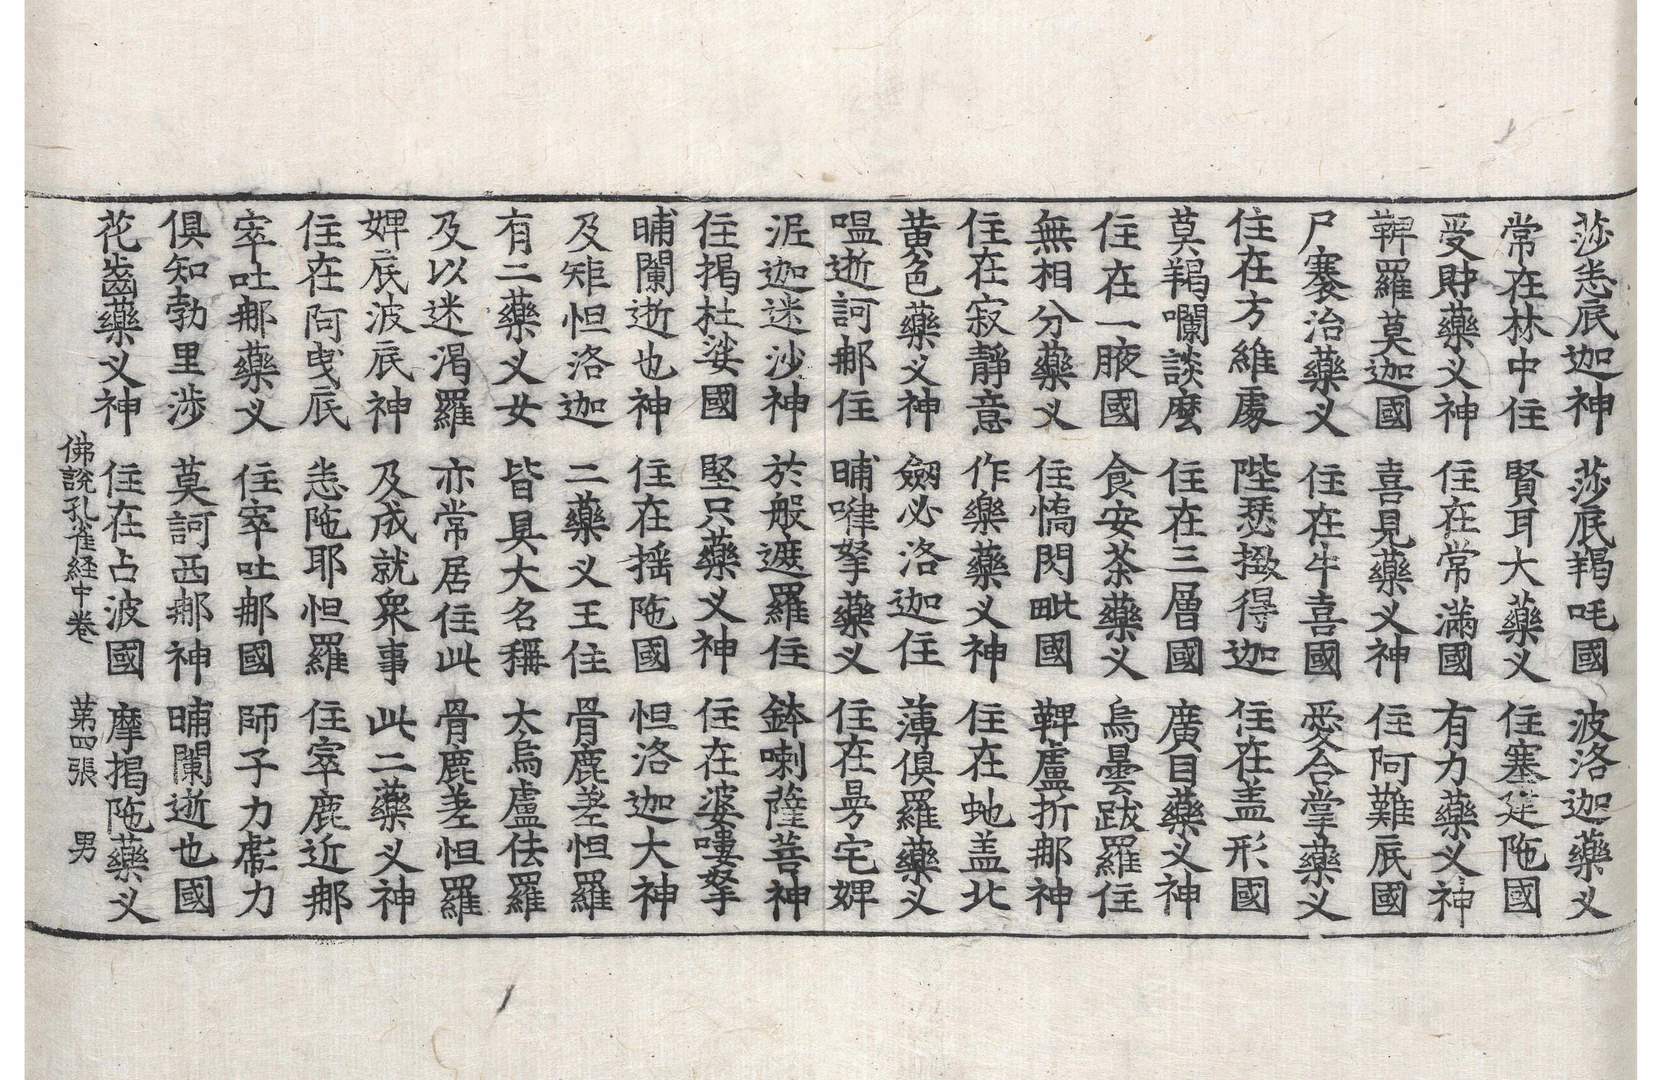 莎悉底迦神 莎底羯吒國 波洛迦藥叉
常在林中住 賢耳大藥叉 住塞建陁國
受財藥叉神 住在常滿國 有力藥叉神
鞞羅莫迦國 喜見藥叉神 住阿難底國
尸騫治藥叉 住在牛喜國 愛合掌藥叉
住在方維處 陛瑟撥得迦 住在盖形國
莫羯囒談麽 住在三層國 廣目藥叉神
住在一腋國 食安茶藥叉 烏曇跋羅住
無相分藥叉 住憍閃毗國 鞞盧折那神
住在寂靜意 作樂藥叉神 住在虵盖北
黄色藥叉神 劔必洛迦住 薄俱羅藥叉
嗢逝訶那住 晡㗚拏藥叉 住在曼宅婢
泥迦迷沙神 於般遮羅住 鉢喇薩菩神
住揭杜娑國 堅只藥叉神 住在婆嘍拏
晡闌逝也神 住在搖陁國 怛洛迦大神
及雉怛洛迦 二藥叉王住 骨鹿差怛羅
有二藥叉女 皆具大名稱 大烏盧佉羅
及以迷渴羅 亦常居住此 骨鹿差怛羅
婢底波底神 及成就衆事 此二藥叉神
住在阿曵底 悉陁耶怛羅 住窣鹿近那
窣吐那藥叉 住窣吐那國 師子力虎力
俱知勃里渉 莫訶西那神 晡闌逝也國
花齒藥叉神 住在占波國 摩揭陁藥叉
佛說孔雀経中卷 第四張 男